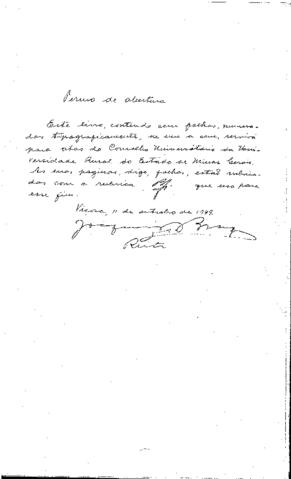 Termo de abertura
Este livro, contendo cem folhas, numera-
das typograficamente, de um a cem, servirá
para atas do Conselho Universitário da Uni-
versidade Rural do Estado de Minas Gerais.
As suas paginas, digo, folhas, estão rubrica-
das com a rubrica que uso para
esse fim.
Viçosa, 11 de outubro de 1949.
Joaquim F. Braga
Reitor